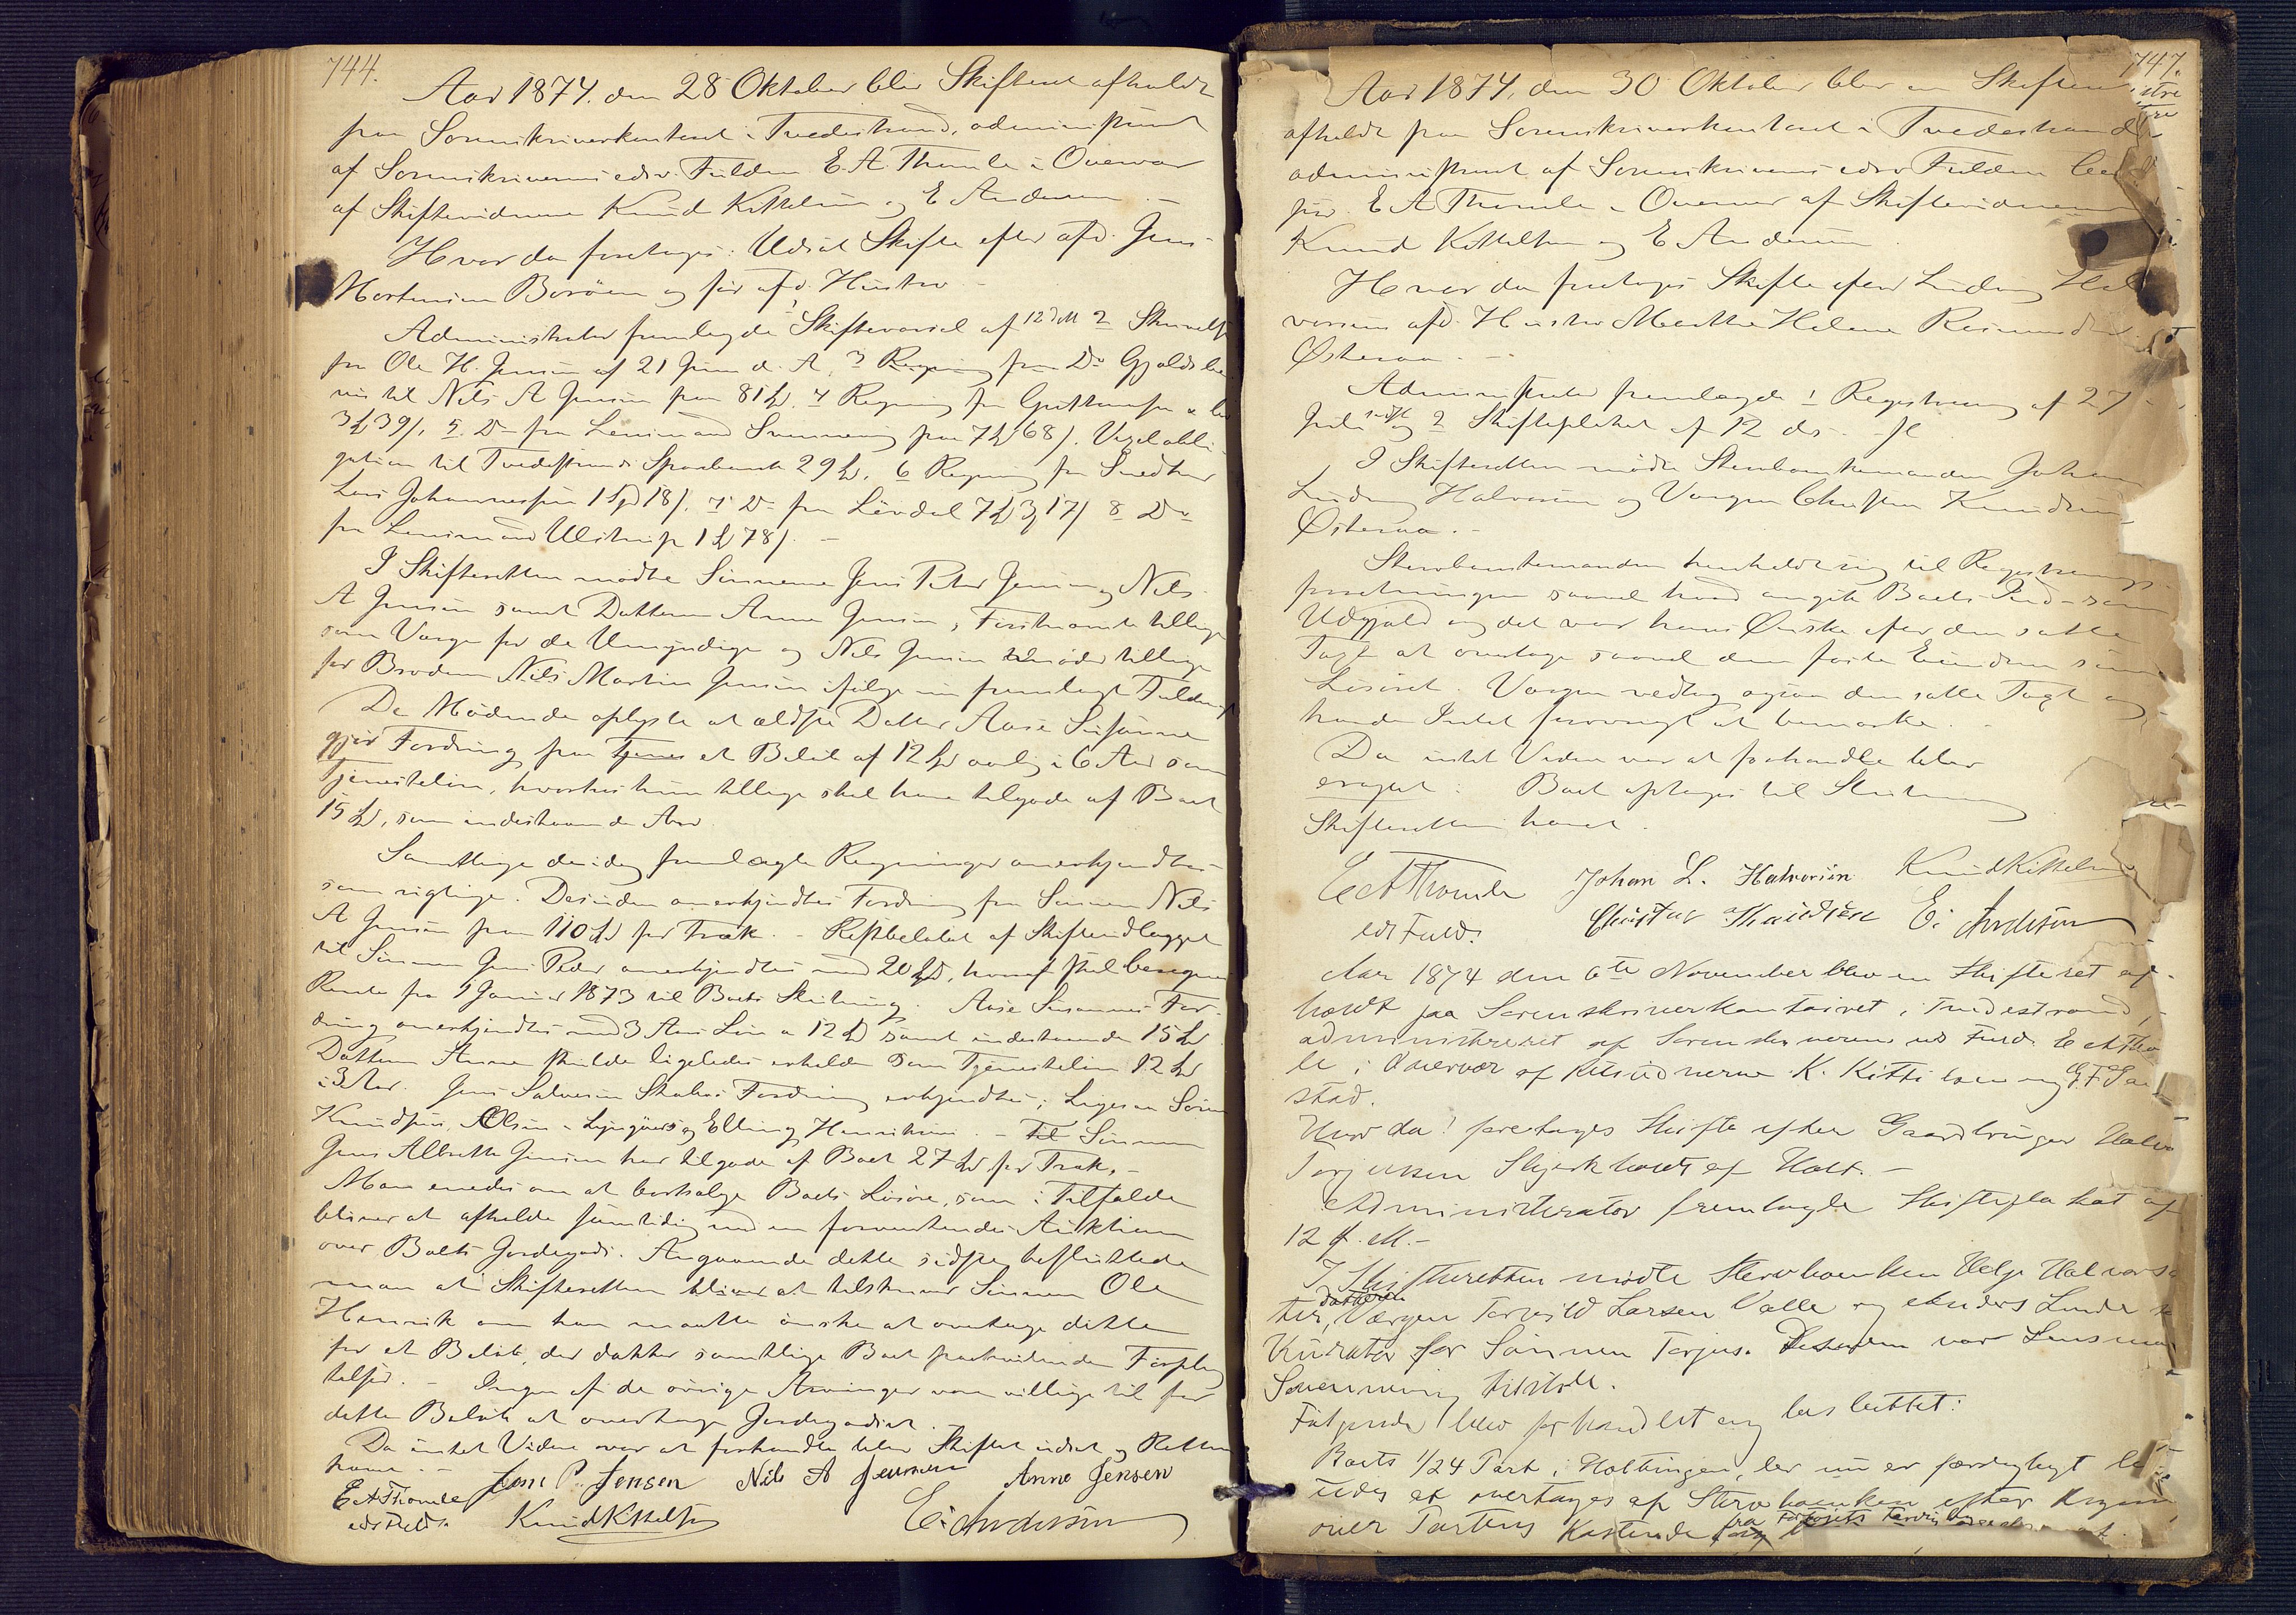 744.
Aar 1874. den 28 Oktober blev Skifteret afholdt
paa Sorenskriverkontoret i Tvedestrand, administreret
af Sorenskriverens edsv. Fuldm E. A. Thomle i Overvær
af Skiftevidnerne Knud Kittelsen og E Andersen. –
Hvor da foretoges: Udsat Skifte efter afd. Jens
Mortensen Borøen og før afd. Hustru –
Administrator fremlagde 1 Skiftevarsel af 12 d M 2 Skrivelse
fra Ole H. Jensen af 21 Juni d. A. 3 Regning fra Do Gjeldsbe
vis til Nils A Jensen paa 81 Spd. 4 Regning fra
3 39 /. 5 Do fra Lensmand Svenneвig paa 7 68 /. Vexelobli
gation til Tvedestrands Sparebank 29 , 6 Regning fra
Lars Johannessen 1 Spd 18 /. 7 Do fra Løvdal 7 3 17 / 8 Do
fra Lensmand Ulstrup 1 78 /. –
I Skifteretten mødte Sønnerne Jens Peter Jensen og Nils
A Jensen samt Datteren Anne Jensen, Førstnævnte tillige
som Værge for de Umyndige og Nils Jensen møder tillige
for Broderen Nils Martin Jensen ifølge en fremlagt Fuldmagt
De Mødende oplyste at ældste Datter Aase Susanne
gjør Fordring paa et Beløb af 12 aarlig i 6 Aar som
Tjenesteløn, hvorhos hun tillige skal have tilgode af Boet
15 , som indestaaende Arv
Samtlige de idag fremlagte Regninger anerkjendtes
som rigtige. Desuden anerkjendtes Fordring fra Sønnen Nils
A Jensen paa 110 for Træk. – Restbeløbet af Skifteudlægget
til Sønnen Jens Peder anerkjendtes med 20 , hvoraf skal beregnes
Rente fra 1 Januar 1873 til Boets Slutning. Aase Susannes For-
dring anerkjendtes med 3 Aars Løn a 12 samt indestaaende 15
Datteren Anne skulde ligeledes erholde som Tjenesteløn 12
i 3 Aar. Jens Salvesen Fordring erkjendtes; Ligesaa Søren
Knudsen, Olsen Lyngør og Elling Henriksen. – Sønnen
Jens Albrethe Jensen har tilgode af Boet 27 for Træk. –
Man enedes om at bortsælge Boets Løsøre, som i Tilfælde
bliver at afholde samtidig med en forventende Auktion
over Boets Jordegods. Angaaende dette sidste besluttede
man at Skifteretten bliver at tilskrive Sønnen Ole
Henrik om han maatte ønske at overtage dette
for et Beløb, der dækker samtlige Boet paahvilende Forplig
telser. – Ingen af de øvrige Arvinger vare villige til for
dette Beløb at overtage Jordegodset.
Da intet Videre var at forhandle blev Skiftet udsat og Retten
hævet –
E A Thomle Jens P. Jensen Nils A Jensen Anne Jensen
edsv Fuldm. Knud Kittelsen E. Andersen
747.
Aar 1874, den 30 Oktober blev en Skifteret
afholdt paa Sorenskriverkontoret i Tvedestrand
administreret af Sorenskriverens edsv Fuldm
jur. E A Thomle i Overvær af Skiftevidnerne
Knud Kittelsen og E Andersen.
Hvor da foretoges Skifte efter Ludvig Hal
vorsens afd. Hustru Marthe Helene Rasmusdtr
Østeraa. –
Administrator fremlagde 1 Registrering af 27
Juli sidstl og 2 Skifteplakat af 12 ds. –
I Skifteretten mødte Stervboenkemanden Johan
Ludvig Halvorsen og Værgen Christen Knudsen
Østeraa. –
Stervboenkemanden henholdt sig til Registrerings-
forretningen saavel hvad angik Boets Ind- som
Udgjæld og det var hans Ønske efter den satte
Taxt at overtage saavel den faste Eiendom som
Løsøret. Værgen vedtog ogsaa den satte Taxt og
havde Intet forøvrigt at bemærke. –
Da intet Videre var at forhandle blev
eragtet: Boet optages til Slutning
Skifteretten hævet.
E A Thomle Johan L. Halvorsen Knud Kittelsen
eds Fuld. Christen Knudsen E. Andersen
Aar 1874 den 6te November blev en Skifteret af-
holdt paa Sorenskriverkontoiret i Tvedestrand,
administreret af Sorenskriverens eds Fuldm. E A Thom
le i Overvær af Retsvidnerne K. Kittelsen og G. F.
stad.
Hvor da! foretoges Skifte efter Gaardbruger Halvor
Torjussen Skjerkholt af Holt. –
Administrator fremlagde Skifteplakat af
12 f. M. –
I Skifteretten mødte Stervboenken Helje Halvors
datteren
, Værgen Torvild Larsen Valle og Anders Lunde
Kurator for Sønnen Torjus. Desuden var Lensmand
Svennevig tilstede.
Følgende blev forhandlet og besluttet:
Boets 1/24 Part i Holtingen, der nu er færdigbygt
udes at overtages af Stervboenken efter
over Partens Kostende